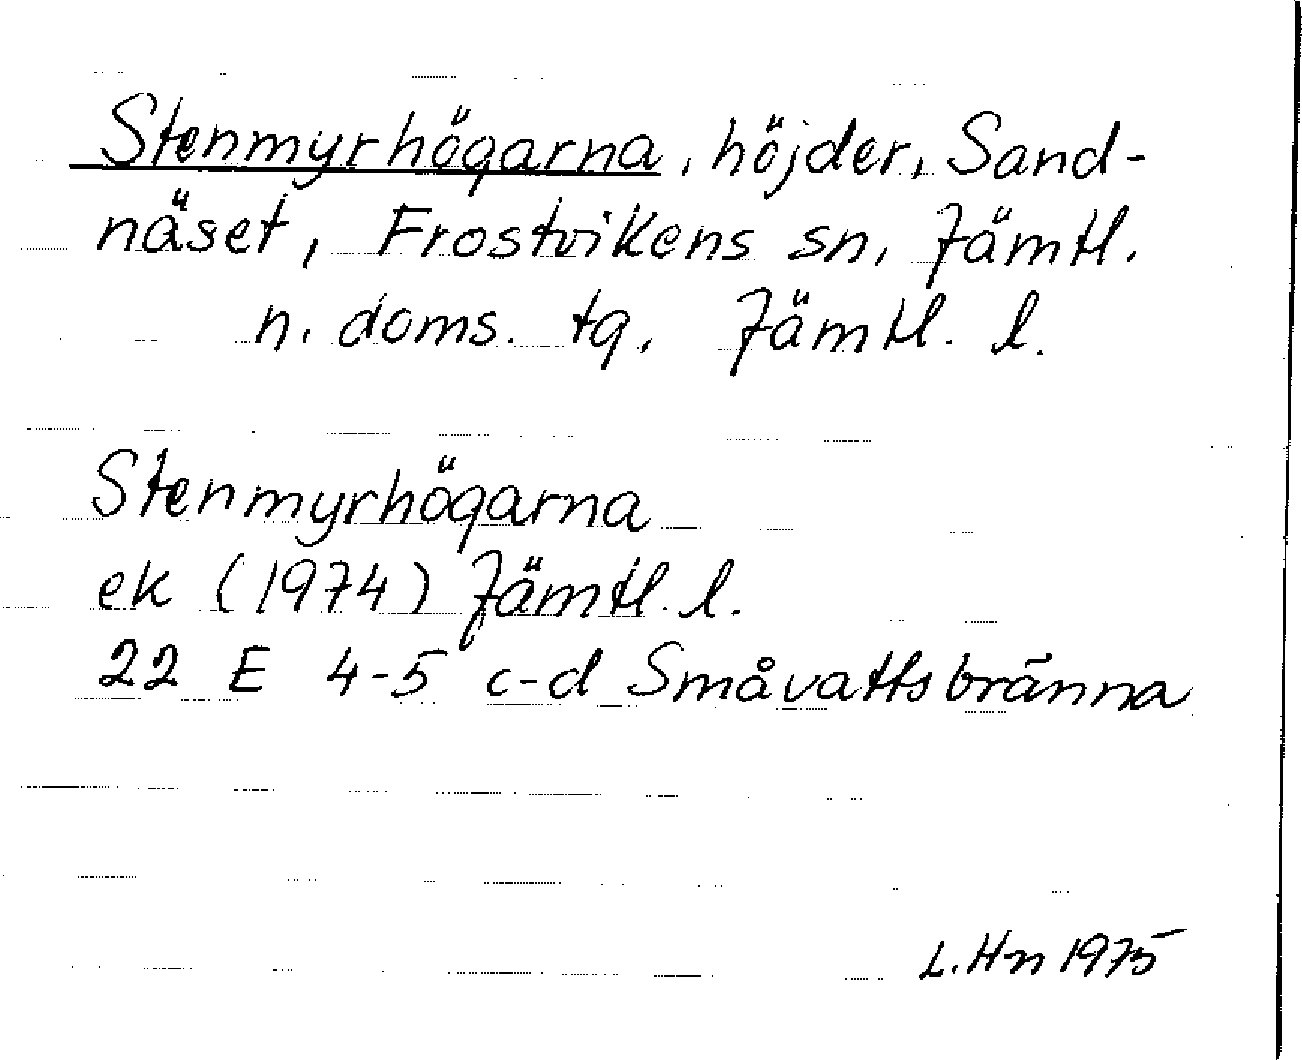 Stenmyrhögarna, höjder, Sand-
näset, Frostvikens sn, Jämtl.
n. doms. tg, Jämtl. l.
Stenmyrhögarna
ek (1974) Jämtl. l.
22 E 4-5 c-d Småvattsbränna
L.Hn 1975